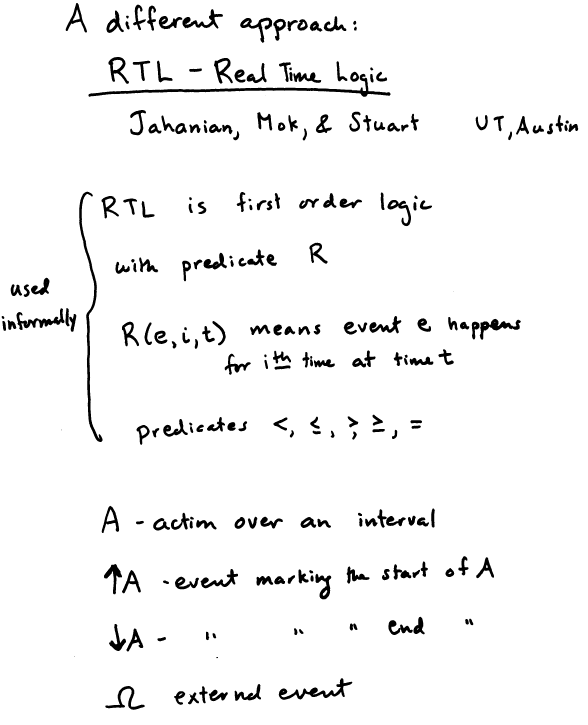 A different approach:
RTL - Real Time Logic
Jahanian, Mok, & Stuart UT, Austin
RTL is first order logic
with predicate R
used
informally
R(e,i,t) means event e happens
for ith time at time t
predicates <, ≤, >, ≥, =
A - action over an interval
↑A - event marking the start of A
↓A - " " " end "
Ω external event